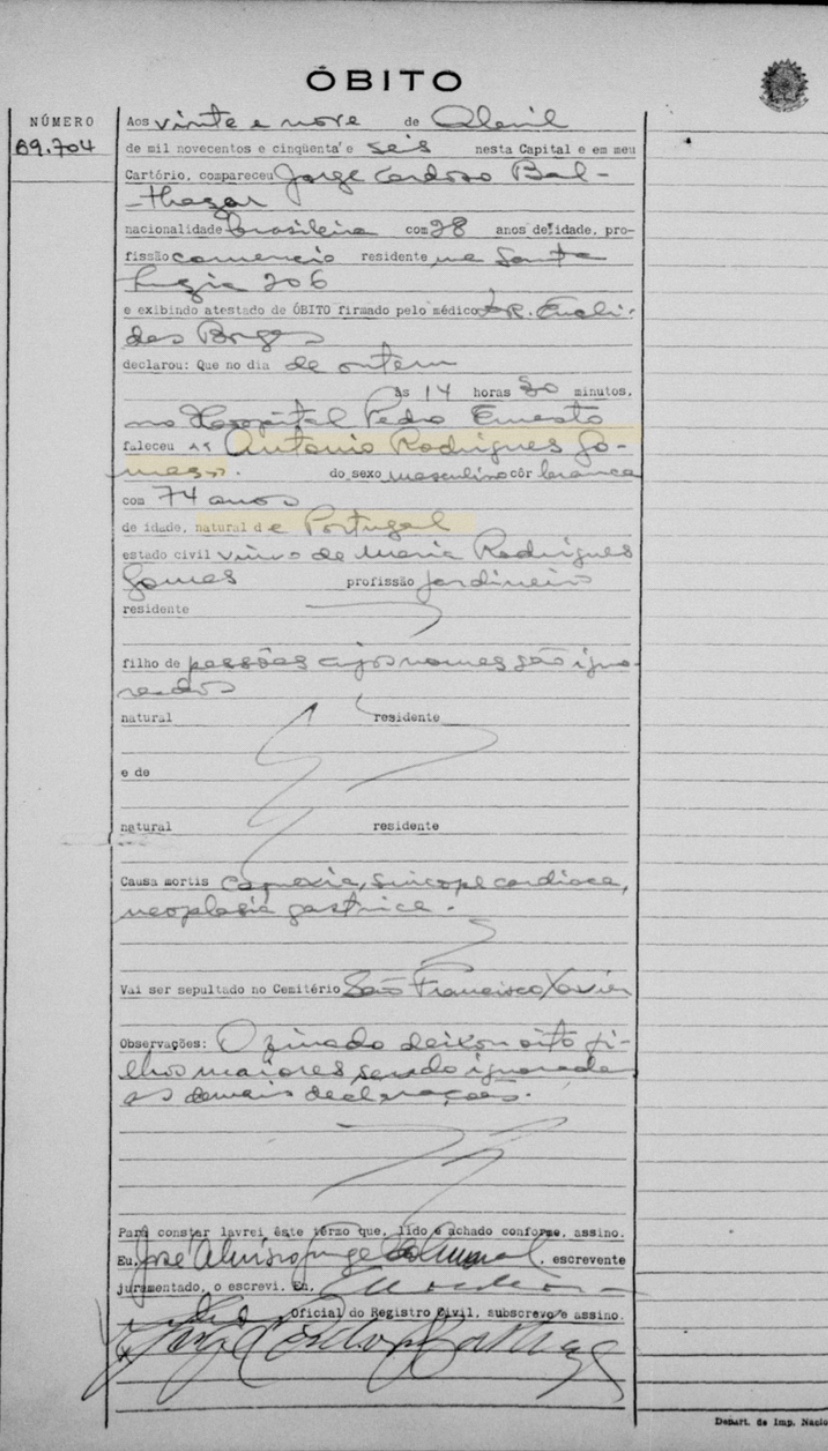 ÓBITO
NÚMERO
89.704
Aos vinte e nove de Abril
de mil novecentos e cinqüenta e seis nesta Capital e em meu
Cartório, compareceu Jorge Cardoso Bal-
-thazar
nacionalidade brasileira com 28 anos de idade, pro-
fissão comercio residente na Santa
Luzia 206
e exibindo atestado de ÓBITO firmado pelo médico Dr. Eucli-
des Borges
declarou: Que no dia de ontem
às 14 horas 30 minutos,
no Hospital Pedro Ernesto
faleceu Antonio Rodrigues Go-
mes. do sexo masculino côr branca
com 74 anos
de idade, natural de Portugal
estado civil viuvo de Maria Rodrigues
Gomes profissão jardineiro
residente
filho de pessôas cujos nomes são igno-
rados
natural residente
e de
natural residente
Causa mortis caquexia, sincope cardiaca,
neoplasia gastrica.
Vai ser sepultado no Cemitério São Francisco Xavier
Observações: O finado deixou oito fi-
lhos maiores sendo ignorada
as demais declarações.
Para constar lavrei êste têrmo que, lido e achado conforme, assino.
Eu, José escrevente
juramentado, o escrevi. En,
Oficial do Registro Civil, subscrevo e assino.
Jorge Cardoso Balthazar
Depart. de Imp. Nacio